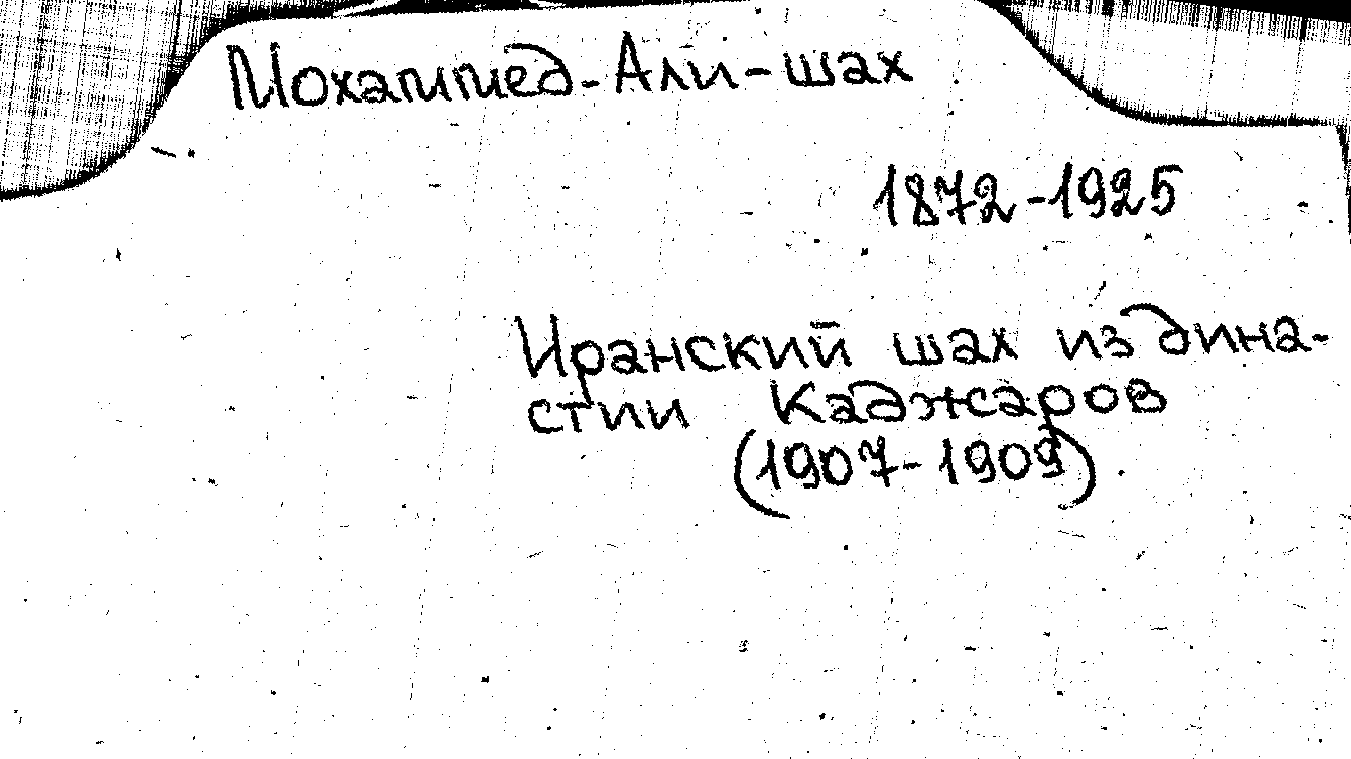 Мохаммед-Али-шах
1872-1925
Иранский шах из дина-
стии Каджаров
(1907-1909).